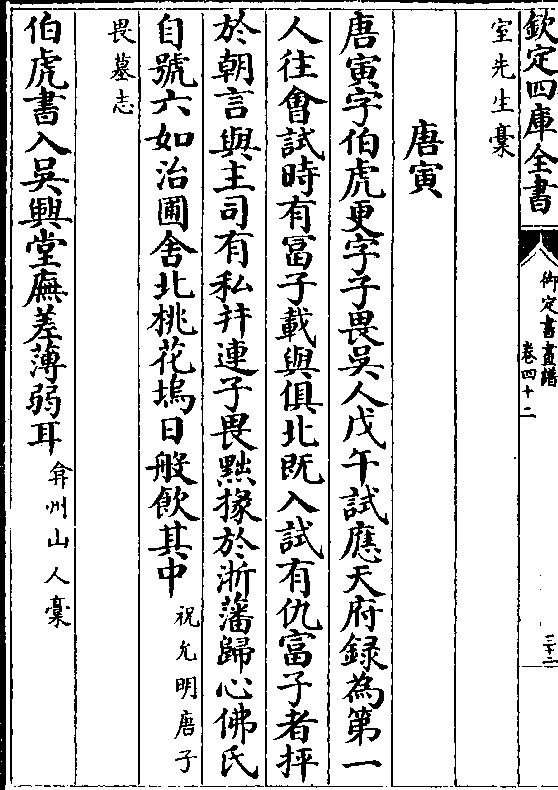 欽定四庫全書
御定書畫譜
卷四十二
三十二
室先生稾
唐寅
唐寅字伯虎更字子畏吳人戊午試應天府録為第一
人往會試時有富子載與俱北既入試有仇富子者抨
於朝言與主司有私幷連子畏黜掾於浙藩歸心佛氏
自號六如治圃舍北桃花塢日般飲其中祝允明唐子
畏墓志
伯虎書入吳興堂廡差薄弱耳弇州山人稾